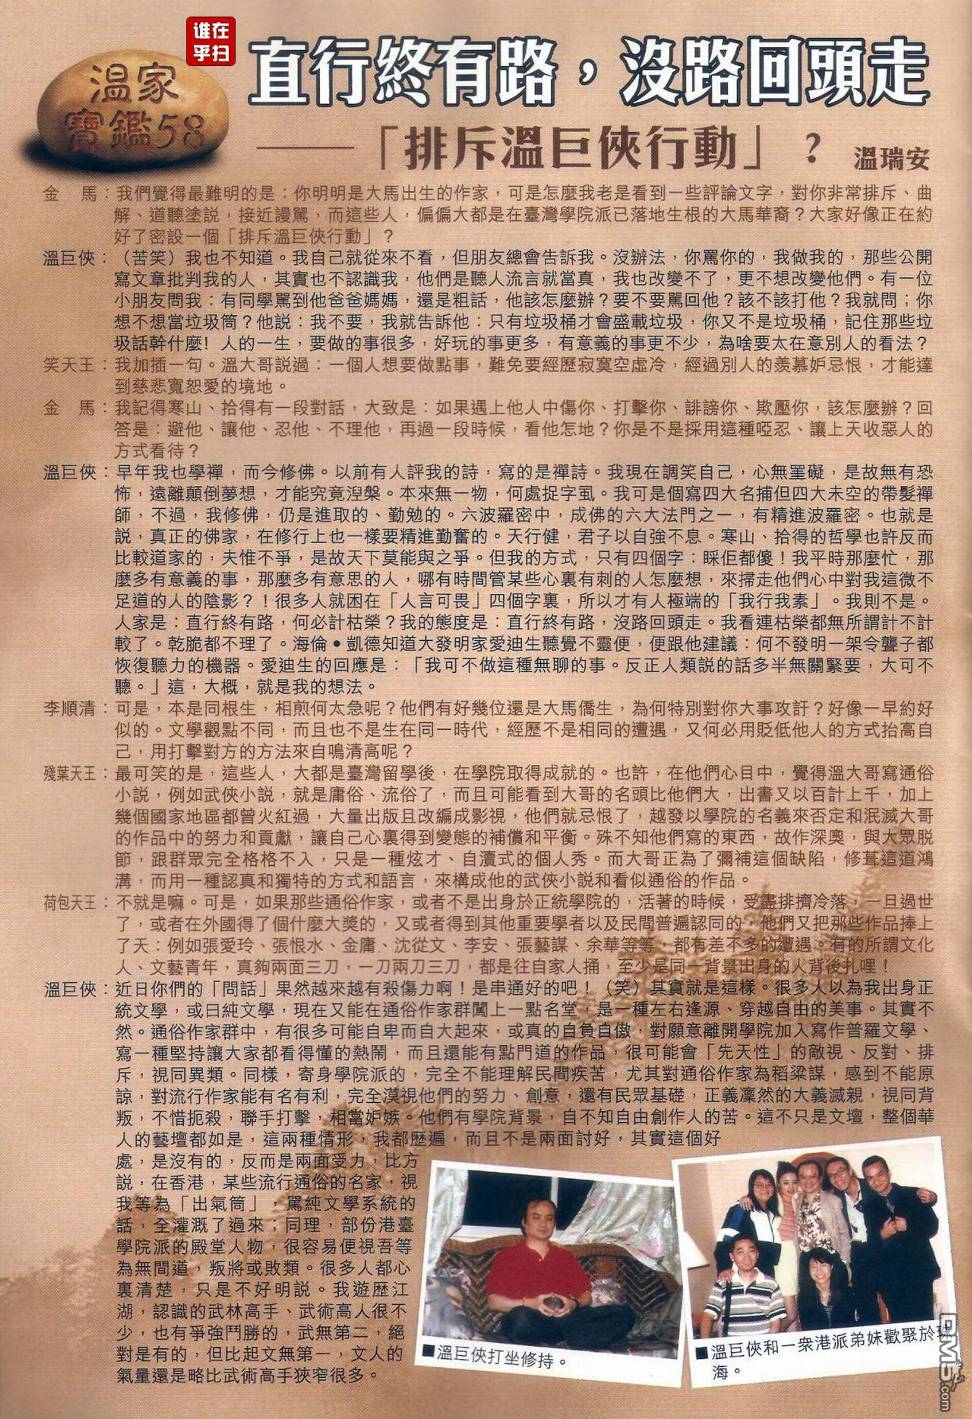 谁在
乎扫
溫家
寶鑑58
直行終有路，沒路回頭走
——「排斥溫巨俠行動」？ 溫瑞安
金　馬：我們覺得最難明的是：你明明是大馬出生的作家，可是怎麼我老是看到一些評論文字，對你非常排斥、曲
解、道聽塗説，接近謾罵，而這些人，偏偏大都是在臺灣學院派已落地生根的大馬華裔？大家好像正在約
好了密設一個「排斥溫巨俠行動」？
溫巨俠：（苦笑）我也不知道。我自己就從來不看，但朋友總會告訴我。沒辦法，你罵你的，我做我的，那些公開
寫文章批判我的人，其實也不認識我，他們是聽人流言就當真，我也改變不了，更不想改變他們。有一位
小朋友問我：有同學罵到他爸爸媽媽，還是粗話，他該怎麼辦？要不要罵回他？該不該打他？我就問；你
想不想當垃圾筒？他説：我不要，我就告訴他：只有垃圾桶才會盛載垃圾，你又不是垃圾桶，記住那些垃
圾話幹什麼！人的一生，要做的事很多，好玩的事更多，有意義的事更不少，為啥要太在意別人的看法？
笑天王：我加插一句。溫大哥説過：一個人想要做點事，難免要經歷寂寞空虛冷，經過別人的羨慕妒忌恨，才能達
到慈悲寬恕愛的境地。
金　馬：我記得寒山、拾得有一段對話，大致是：如果遇上他人中傷你、打擊你、誹謗你、欺壓你，該怎麼辦？回
答是：避他、讓他、忍他、不理他，再過一段時候，看他怎地？你是不是採用這種啞忍、讓上天收惡人的
方式看待？
溫巨俠：早年我也學禪，而今修佛。以前有人評我的詩，寫的是禪詩。我現在調笑自己，心無罣礙，是故無有恐
怖，遠離顛倒夢想，才能究竟涅槃。本來無一物，何處捉字虱。我可是個寫四大名捕但四大未空的帶髮禪
師，不過，我修佛，仍是進取的、勤勉的。六波羅密中，成佛的六大法門之一，有精進波羅密。也就是
説，真正的佛家，在修行上也一樣要精進勤奮的。天行健，君子以自強不息。寒山、拾得的哲學也許反而
比較道家的，夫惟不爭，是故天下莫能與之爭。但我的方式，只有四個字：睬佢都傻！我平時那麼忙，那
麼多有意義的事，那麼多有意思的人，哪有時間管某些心裏有刺的人怎麼想，來掃走他們心中對我這微不
足道的人的陰影？！很多人就困在「人言可畏」四個字裏，所以才有人極端的「我行我素」。我則不是。
人家是：直行終有路，何必計枯榮？我的態度是：直行終有路，沒路回頭走。我看連枯榮都無所謂計不計
較了。乾脆都不理了。海倫•凱德知道大發明家愛迪生聽覺不靈便，便跟他建議：何不發明一架令聾子都
恢復聽力的機器。愛迪生的回應是：「我可不做這種無聊的事。反正人類説的話多半無關緊要，大可不
聽。」這，大概，就是我的想法。
李順清：可是，本是同根生，相煎何太急呢？他們有好幾位還是大馬僑生，為何特別對你大事攻訐？好像一早約好
似的。文學觀點不同，而且也不是生在同一時代，經歷不是相同的遭遇，又何必用貶低他人的方式抬高自
己，用打擊對方的方法來自鳴清高呢？
殘葉天王：最可笑的是，這些人，大都是臺灣留學後，在學院取得成就的。也許，在他們心目中，覺得溫大哥寫通俗
小説，例如武俠小説，就是庸俗、流俗了，而且可能看到大哥的名頭比他們大，出書又以百計上千，加上
幾個國家地區都曾火紅過，大量出版且改編成影視，他們就忌恨了，越發以學院的名義來否定和泯滅大哥
的作品中的努力和貢獻，讓自己心裏得到變態的補償和平衡。殊不知他們寫的東西，故作深奧，與大眾脱
節，跟群眾完全格格不入，只是一種炫才、自瀆式的個人秀。而大哥正為了彌補這個缺陷，修葺這道鴻
溝，而用一種認真和獨特的方式和語言，來構成他的武俠小説和看似通俗的作品。
荷包天王：不就是嘛。可是，如果那些通俗作家，或者不是出身於正統學院的，活著的時候，受盡排擠冷落，一旦過世
了，或者在外國得了個什麼大獎的，又或者得到其他重要學者以及民間普遍認同的，他們又把那些作品捧上
了天：例如張愛玲、張恨水、金庸、沈從文、李安、張藝謀、余華等等，都有差不多的遭遇。有的所謂文化
人、文藝青年，真夠兩面三刀，一刀兩刀三刀，都是往自家人捅，至少是同一背景出身的人背後扎哩！
溫巨俠：近日你們的「問話」果然越來越有殺傷力啊！是串通好的吧！（笑）其實就是這樣。很多人以為我出身正
統文學，或曰純文學，現在又能在通俗作家群闖上一點名堂，是一種左右逢源、穿越自由的美事。其實不
然。通俗作家群中，有很多可能自卑而自大起來，或真的自負自傲，對願意離開學院加入寫作普羅文學、
寫一種堅持讓大家都看得懂的熱鬧，而且還能有點門道的作品，很可能會「先天性」的敵視、反對、排
斥，視同異類。同樣，寄身學院派的，完全不能理解民間疾苦，尤其對通俗作家為稻粱謀，感到不能原
諒，對流行作家能有名有利，完全漠視他們的努力、創意，還有民眾基礎，正義凜然的大義滅親，視同背
叛，不惜扼殺，聯手打擊，相當妒嫉。他們有學院背景，自不知自由創作人的苦。這不只是文壇，整個華
人的藝壇都如是，這兩種情形，我都歷遍，而且不是兩面討好，其實這個好
處，是沒有的，反而是兩面受力，比方
説，在香港，某些流行通俗的名家，視
我等為「出氣筒」，罵純文學系統的
話，全灌溉了過來；同理，部份港臺
學院派的殿堂人物，很容易便視吾等
為無間道，叛將或敗類。很多人都心
裏清楚，只是不好明説。我遊歷江
湖，認識的武林高手、武術高人很不
少，也有爭強鬥勝的，武無第二，絕
對是有的，但比起文無第一，文人的
氣量還是略比武術高手狹窄很多。
■溫巨俠打坐修持。
■溫巨俠和一眾港派弟妹歡聚於珠
海。
DM5.com